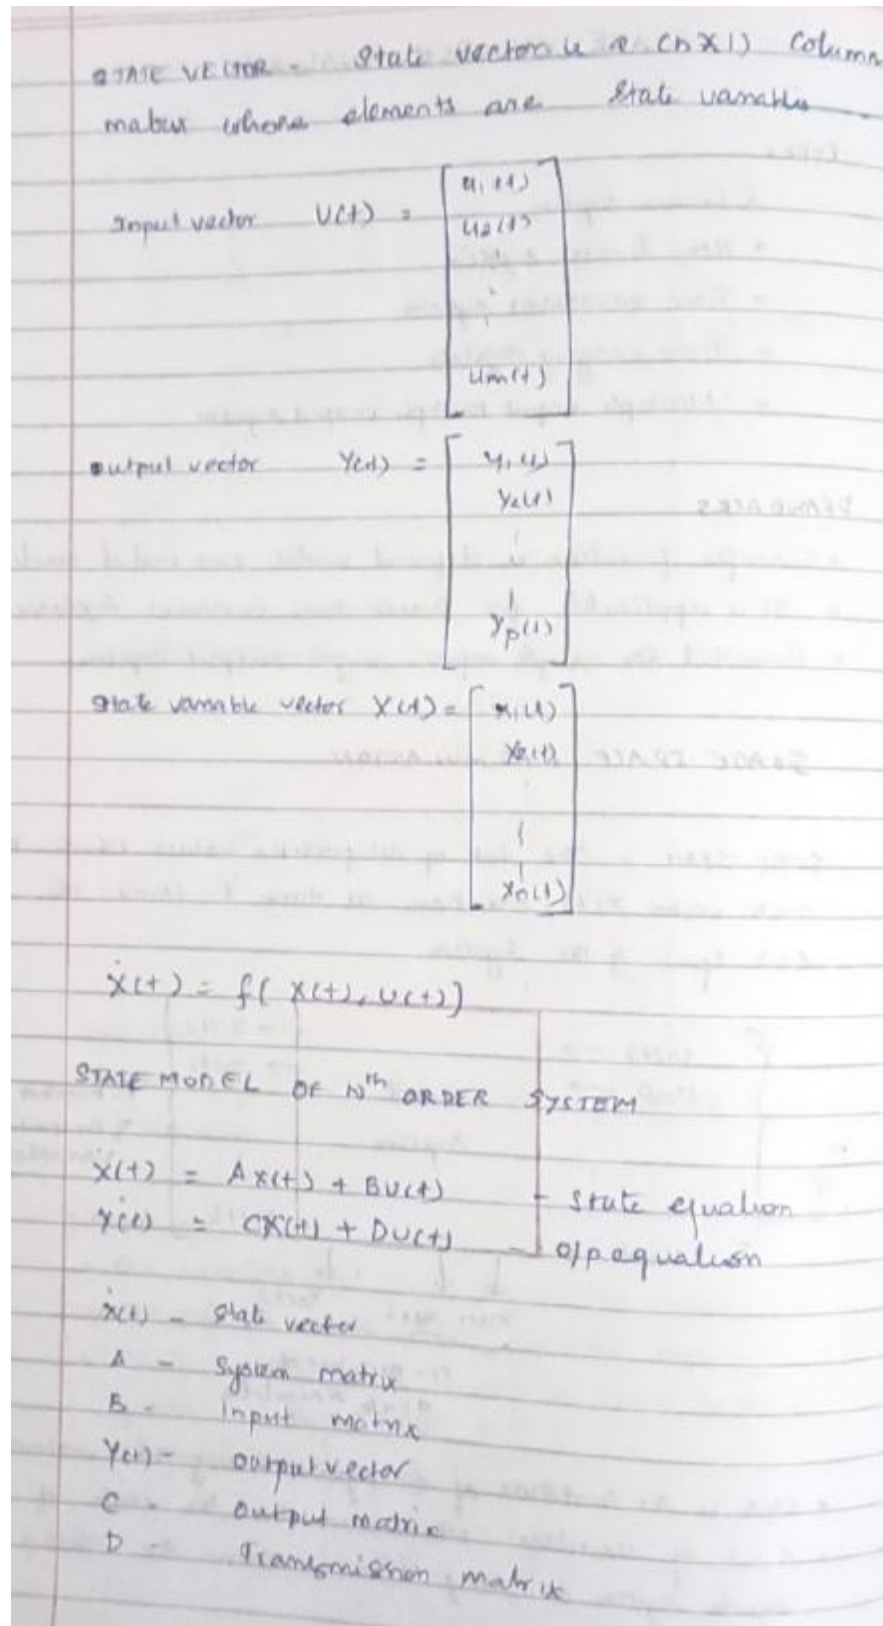 STATE VECTOR - State vector is a (n×1) column
matrix whose elements are state variables.
Input vector U(t) = [ u1(t)
u2(t)
um(t) ]
output vector Y(t) = [ y1(t)
y2(t)
yp(t) ]
State variable vector X(t) = [ x1(t)
x2(t)
xn(t) ]
Ẋ(t) = f( X(t), U(t))
STATE MODEL OF Nth ORDER SYSTEM
Ẋ(t) = AX(t) + BU(t) - state equation
Ẏ(t) = CX(t) + DU(t) - o/p equation
ẋ(t) - State vector
A - System matrix
B - Input matrix
Y(t) - output vector
C - output matrix
D - Transmission matrix